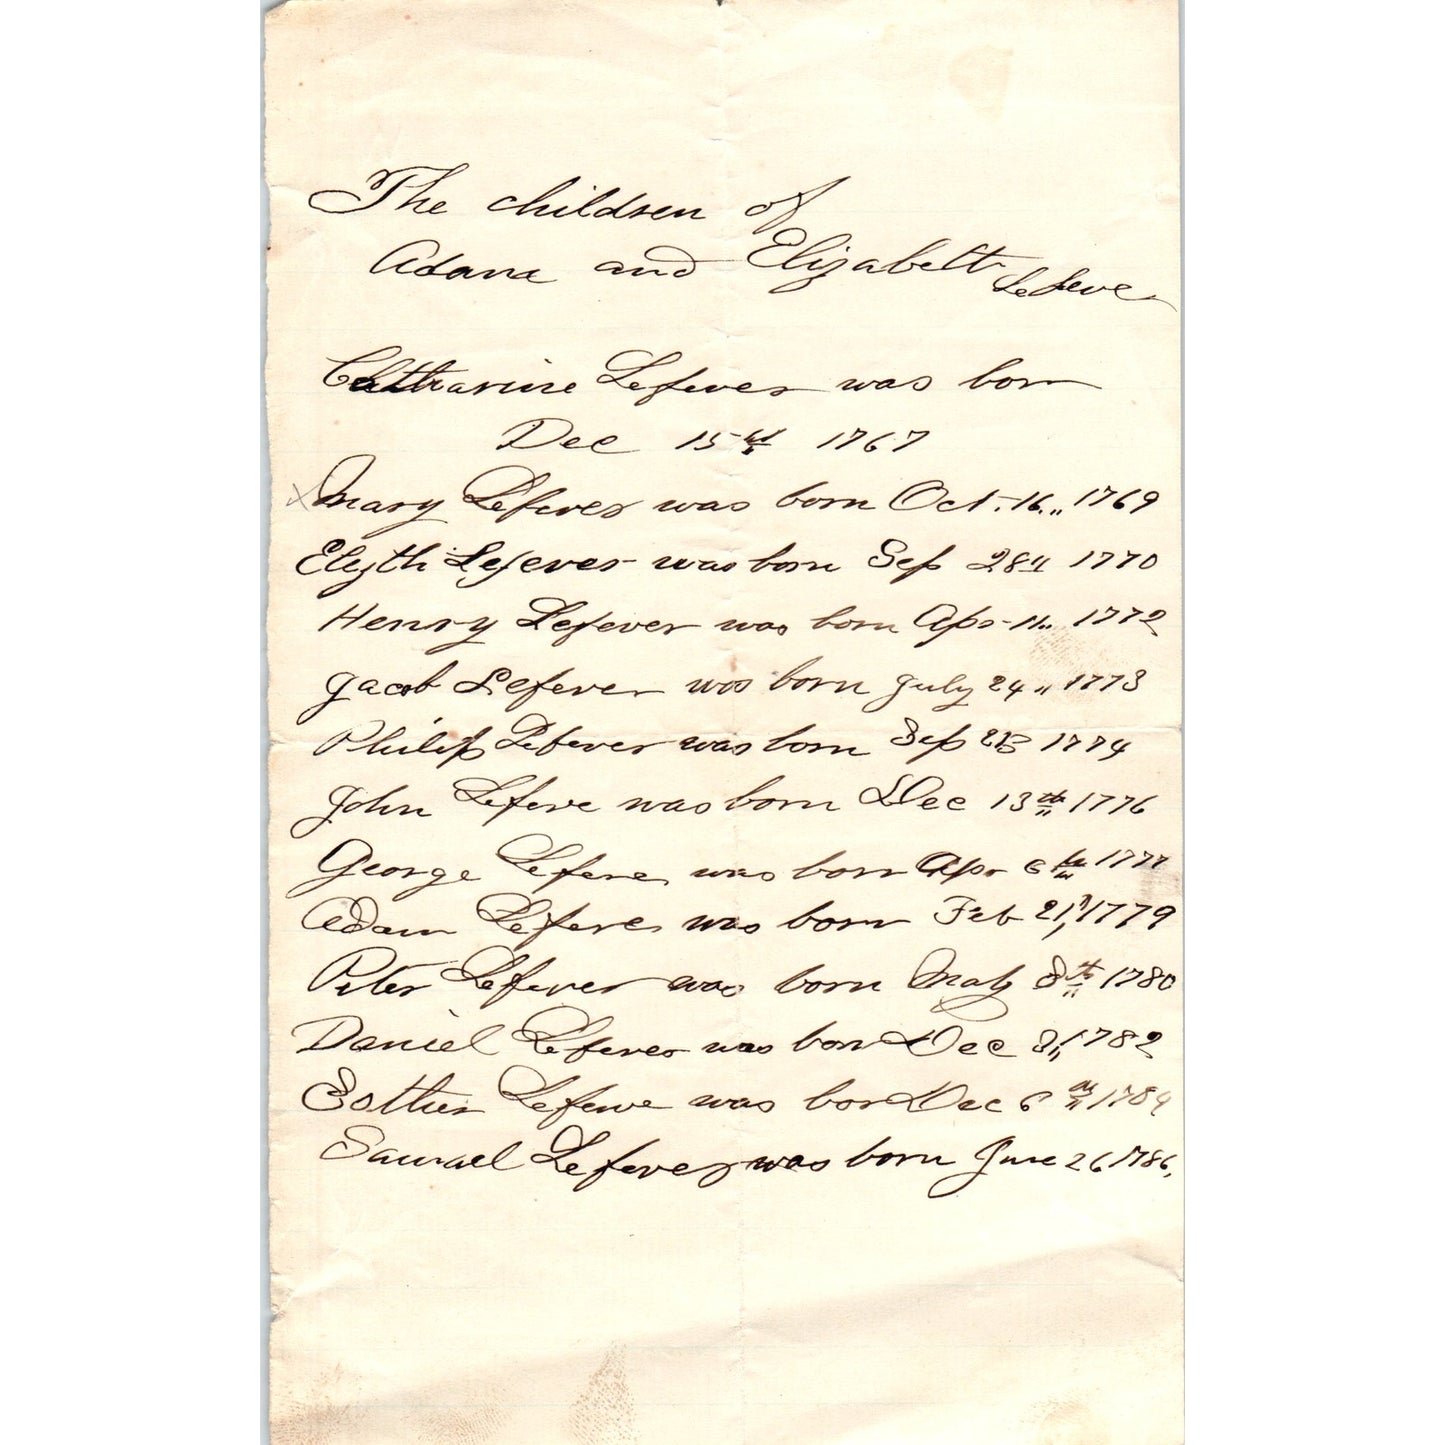 The children of
Adam and Elizabeth Lefever
Catharine Lefever was born
Dec 15th 1767
Mary Lefever was born Oct. 16 1769
Elizth Lefever was born Sep 28th 1770
Henry Lefever was born Apr 11 1772
Jacob Lefever was born July 24 1773
Philip Lefever was born Sep 1774
John Lefeve was born Dec 13th 1776
George Lefeve was born Apr 6th 1777
Adam Lefeve was born Feb 21 1779
Peter Lefever was born May 8th 1780
Daniel Lefever was born Dec 8 1782
Esther Lefeve was born Dec 6th 1784
Samuel Lefever was born June 26 1786,